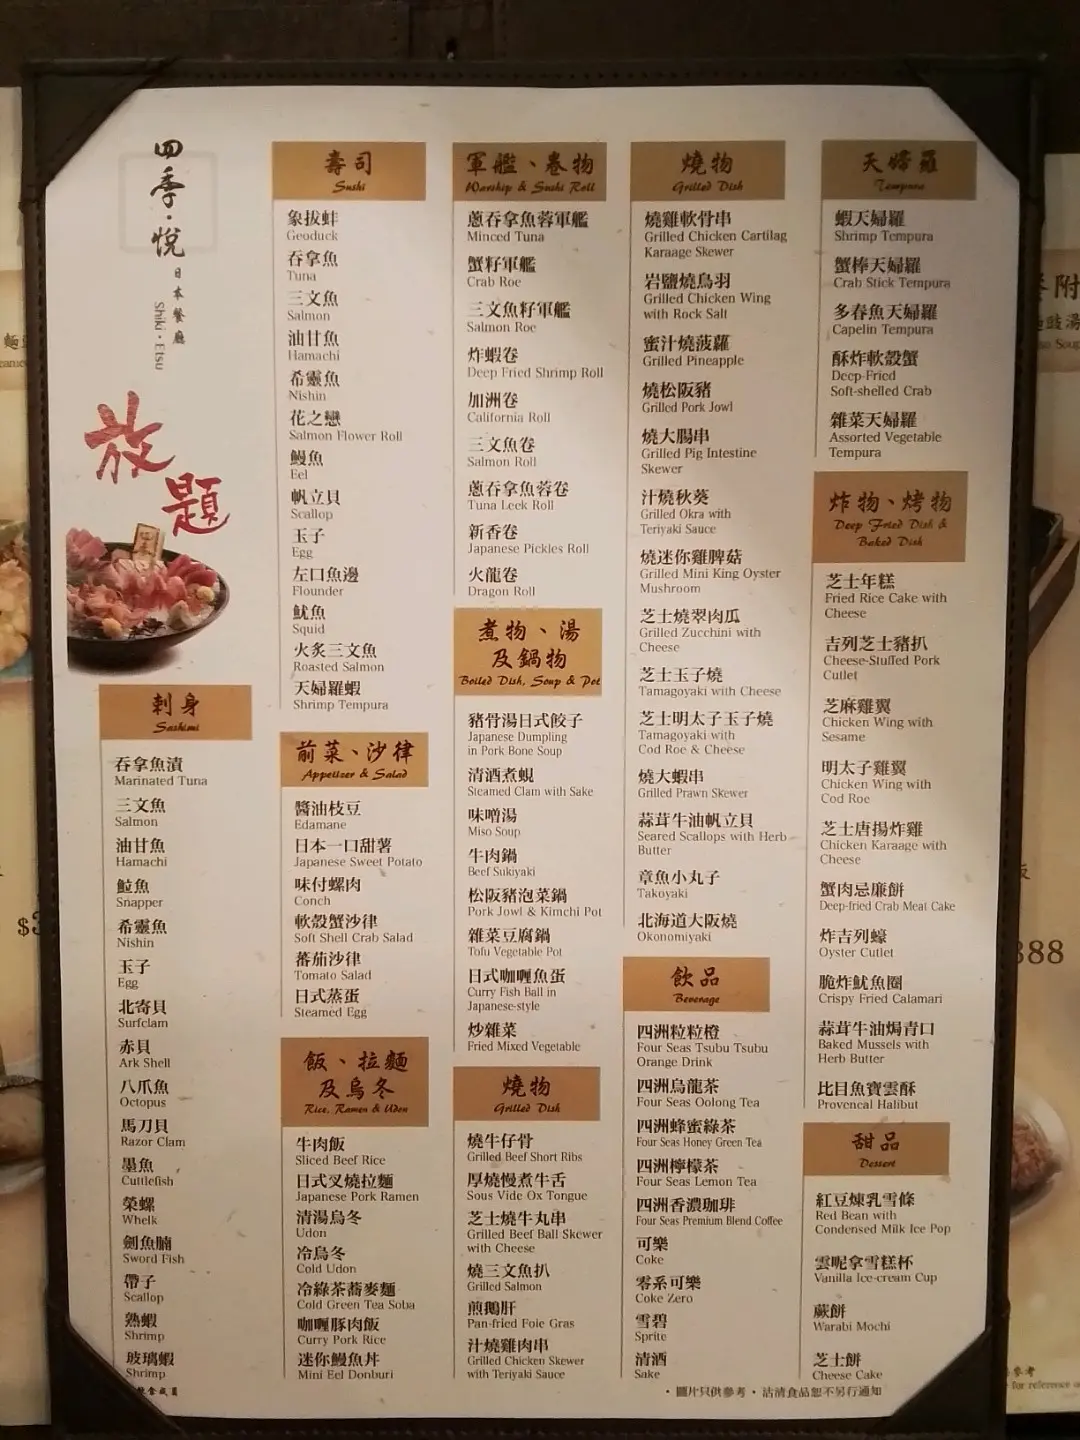 四季·悅
日本餐廳
Shiki·Etsu
放題
刺身
Sashimi
吞拿魚漬
Marinated Tuna
三文魚
Salmon
油甘魚
Hamachi
鯰魚
Snapper
希靈魚
Nishin
玉子
Egg
北寄貝
Surfclam
赤貝
Ark Shell
八爪魚
Octopus
馬刀貝
Razor Clam
墨魚
Cuttlefish
榮螺
Whelk
劍魚腩
Sword Fish
帶子
Scallop
熟蝦
Shrimp
玻璃蝦
Shrimp
壽司
Sushi
象拔蚌
Geoduck
吞拿魚
Tuna
三文魚
Salmon
油甘魚
Hamachi
希靈魚
Nishin
花之戀
Salmon Flower Roll
鰻魚
Eel
帆立貝
Scallop
玉子
Egg
左口魚邊
Flounder
魷魚
Squid
火炙三文魚
Roasted Salmon
天婦羅蝦
Shrimp Tempura
前菜、沙律
Appetizer & Salad
醬油枝豆
Edamane
日本一口甜薯
Japanese Sweet Potato
味付螺肉
Conch
軟殼蟹沙律
Soft Shell Crab Salad
蕃茄沙律
Tomato Salad
日式蒸蛋
Steamed Egg
飯、拉麵
及烏冬
Rice, Ramen & Udon
牛肉飯
Sliced Beef Rice
日式叉燒拉麵
Japanese Pork Ramen
清湯烏冬
Udon
冷烏冬
Cold Udon
冷綠茶蕎麥麵
Cold Green Tea Soba
咖喱豚肉飯
Curry Pork Rice
迷你鰻魚丼
Mini Eel Donburi
軍艦、卷物
Warship & Sushi Roll
蔥吞拿魚蓉軍艦
Minced Tuna
蟹籽軍艦
Crab Roe
三文魚籽軍艦
Salmon Roe
炸蝦卷
Deep Fried Shrimp Roll
加洲卷
California Roll
三文魚卷
Salmon Roll
蔥吞拿魚蓉卷
Tuna Leek Roll
新香卷
Japanese Pickles Roll
火龍卷
Dragon Roll
煮物、湯
及鍋物
Boiled Dish, Soup & Pot
豬骨湯日式餃子
Japanese Dumpling
in Pork Bone Soup
清酒煮蜆
Steamed Clam with Sake
味噌湯
Miso Soup
牛肉鍋
Beef Sukiyaki
松阪豬泡菜鍋
Pork Jowl & Kimchi Pot
雜菜豆腐鍋
Tofu Vegetable Pot
日式咖喱魚蛋
Curry Fish Ball in
Japanese-style
炒雜菜
Fried Mixed Vegetable
燒物
Grilled Dish
燒牛仔骨
Grilled Beef Short Ribs
厚燒慢煮牛舌
Sous Vide Ox Tongue
芝士燒牛丸串
Grilled Beef Ball Skewer
with Cheese
燒三文魚扒
Grilled Salmon
煎鵝肝
Pan-fried Foie Gras
汁燒雞肉串
Grilled Chicken Skewer
with Teriyaki Sauce
燒物
Grilled Dish
燒雞軟骨串
Grilled Chicken Cartilag
Karaage Skewer
岩鹽燒鳥羽
Grilled Chicken Wing
with Rock Salt
蜜汁燒菠蘿
Grilled Pineapple
燒松阪豬
Grilled Pork Jowl
燒大腸串
Grilled Pig Intestine
Skewer
汁燒秋葵
Grilled Okra with
Teriyaki Sauce
燒迷你雞脾菇
Grilled Mini King Oyster
Mushroom
芝士燒翠肉瓜
Grilled Zucchini with
Cheese
芝士玉子燒
Tamagoyaki with Cheese
芝士明太子玉子燒
Tamagoyaki with
Cod Roe & Cheese
燒大蝦串
Grilled Prawn Skewer
蒜茸牛油帆立貝
Seared Scallops with Herb
Butter
章魚小丸子
Takoyaki
北海道大阪燒
Okonomiyaki
飲品
Beverage
四洲粒粒橙
Four Seas Tsubu Tsubu
Orange Drink
四洲烏龍茶
Four Seas Oolong Tea
四洲蜂蜜綠茶
Four Seas Honey Green Tea
四洲檸檬茶
Four Seas Lemon Tea
四洲香濃咖啡
Four Seas Premium Blend Coffee
可樂
Coke
零系可樂
Coke Zero
雪碧
Sprite
清酒
Sake
天婦羅
Tempura
蝦天婦羅
Shrimp Tempura
蟹棒天婦羅
Crab Stick Tempura
多春魚天婦羅
Capelin Tempura
酥炸軟殼蟹
Deep-Fried
Soft-shelled Crab
雜菜天婦羅
Assorted Vegetable
Tempura
炸物、烤物
Deep Fried Dish &
Baked Dish
芝士年糕
Fried Rice Cake with
Cheese
吉列芝士豬扒
Cheese-Stuffed Pork
Cutlet
芝麻雞翼
Chicken Wing with
Sesame
明太子雞翼
Chicken Wing with
Cod Roe
芝士唐揚炸雞
Chicken Karaage with
Cheese
蟹肉忌廉餅
Deep-fried Crab Meat Cake
炸吉列蠔
Oyster Cutlet
脆炸魷魚圈
Crispy Fried Calamari
蒜茸牛油焗青口
Baked Mussels with
Herb Butter
比目魚寶雲酥
Provencal Halibut
甜品
Dessert
紅豆煉乳雪條
Red Bean with
Condensed Milk Ice Pop
雲呢拿雪糕杯
Vanilla Ice-cream Cup
蕨餅
Warabi Mochi
芝士餅
Cheese Cake
·圖片只供參考·沽清食品恕不另行通知
附
豉湯
Soup
888
參考
for reference